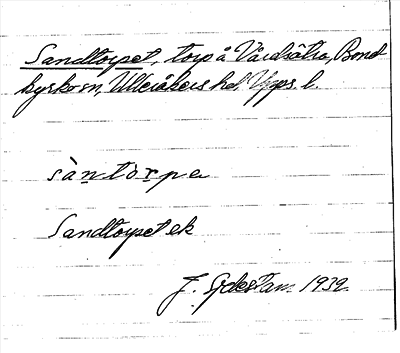 Sandtorpet, torp å Vårdsätra, Bond
kyrko sn, Ulleråkers hd, Upps. l.
sàntòrpa
Sandtorpet ek
J. 1932